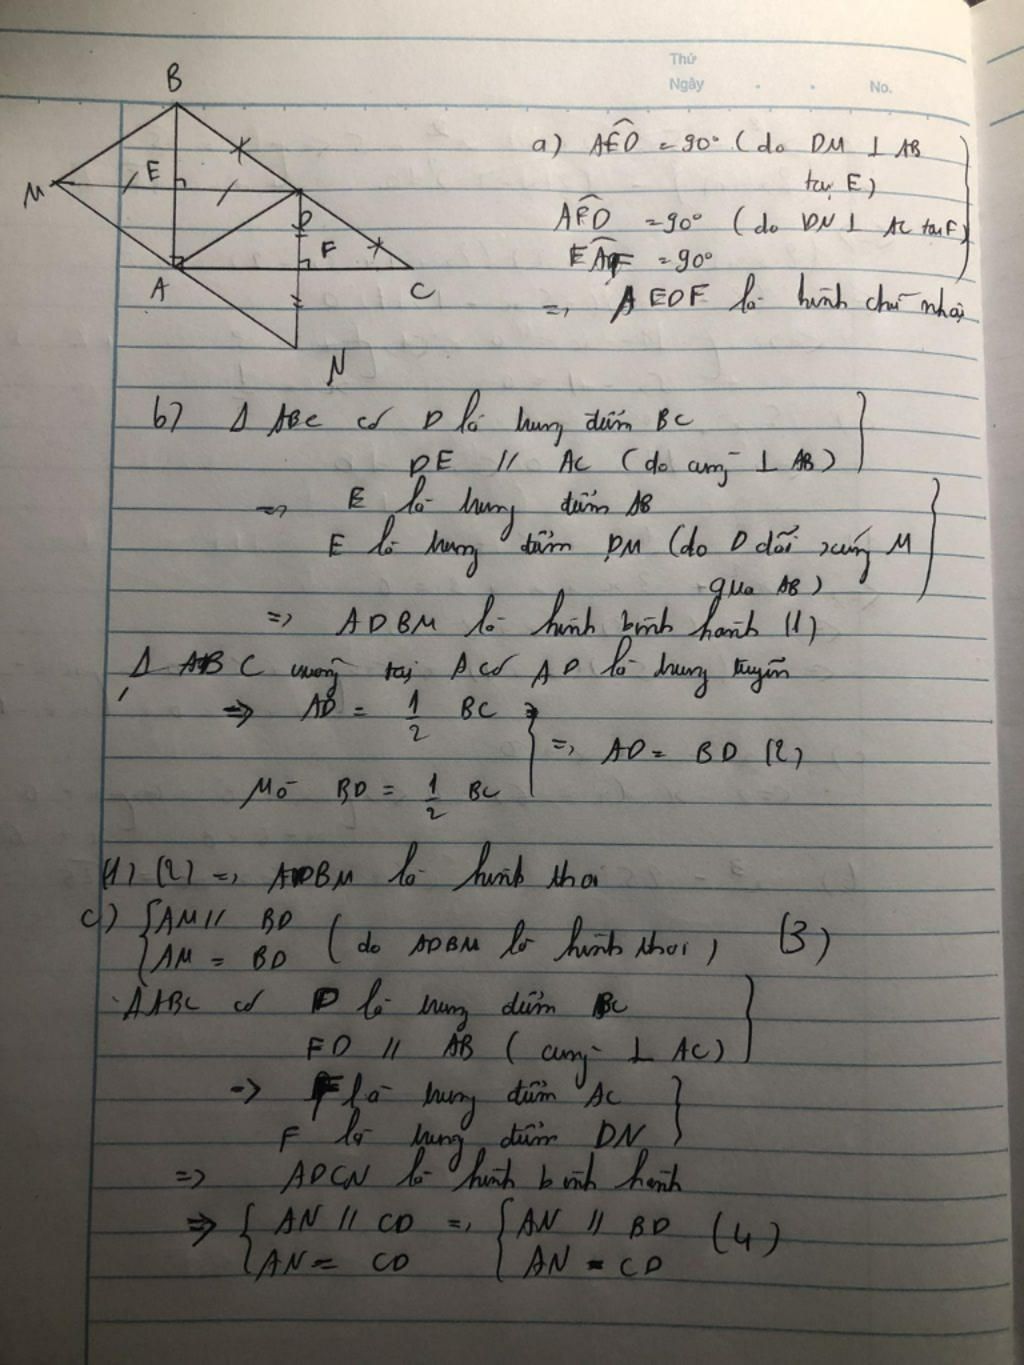 Thứ
Ngày
No.
B
E
M
D
F
A
C
N
a) AÊD = 90° (do DM ⊥ AB
tại E)
AF̂D = 90° (do DN ⊥ AC tại F)
EÂF = 90°
=> AEDF là hình chữ nhật
b) Δ ABC có D là trung điểm BC
DE // AC (do cùng ⊥ AB)
=> E là trung điểm AB
E là trung điểm DM (do D đối xứng M
qua AB)
=> ADBM là hình bình hành (1)
Δ ABC vuông tại A có AD là trung tuyến
=> AD = 1/2 BC
=> AD = BD (2)
Mà BD = 1/2 BC
(1) (2) => ADBM là hình thoi
c) { AM // BD
AM = BD (do ADBM là hình thoi) (3)
ΔABC có D là trung điểm BC
FD // AB (cùng ⊥ AC)
=> F là trung điểm AC
F là trung điểm DN
=> ADCN là hình bình hành
=> { AN // CD => { AN // BD (4)
AN = CD AN = CD